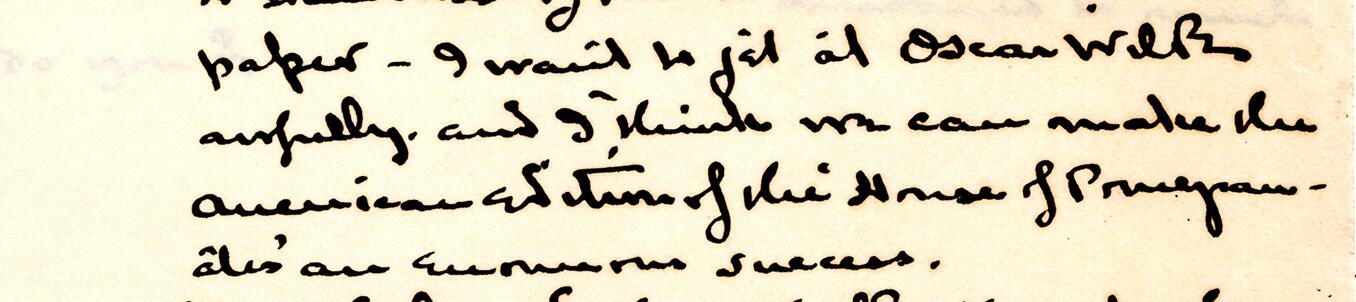 paper – I want to get at Oscar Wilde
awfully. and I think we can make the
American Edition of the House of Pomegran-
ates an enormous success.